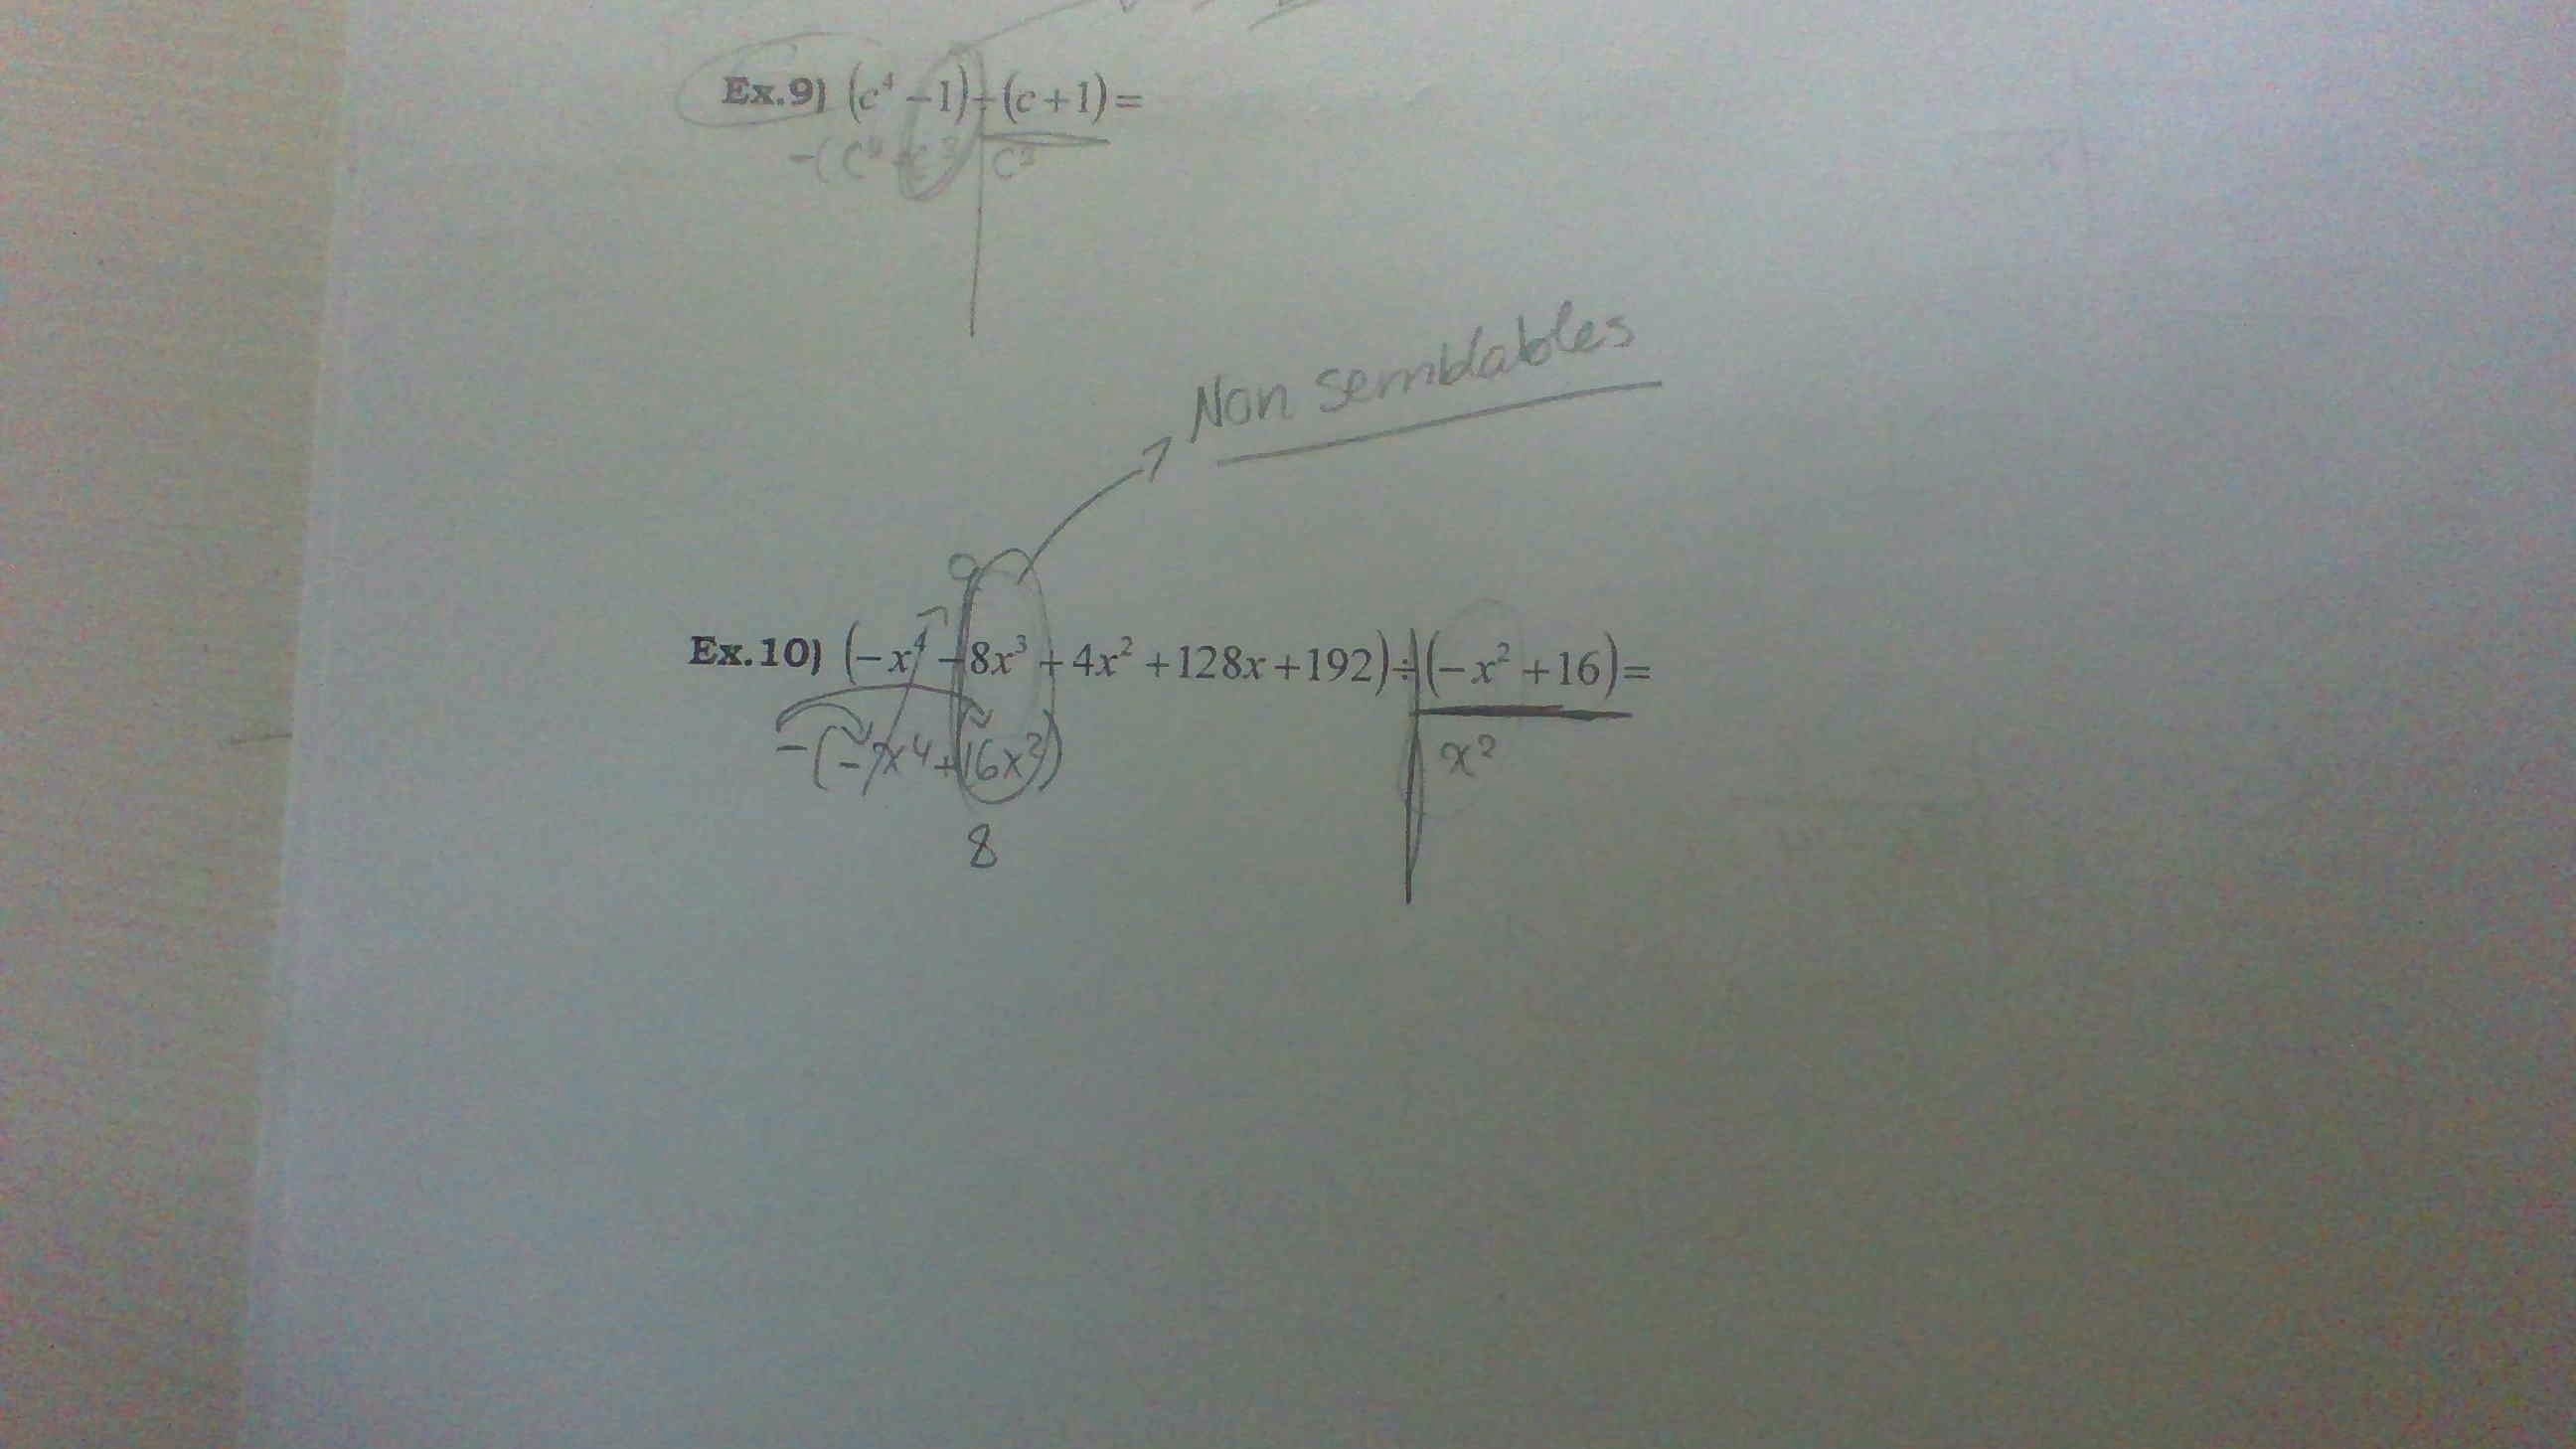 Ex.9) (c⁴ −1)÷(c+1)=
−(c⁴ + c³ c³
Non semblables
Ex.10) (−x⁴ −8x³ +4x² +128x+192)÷(−x² +16)=
−(−x⁴+16x²) x²
8